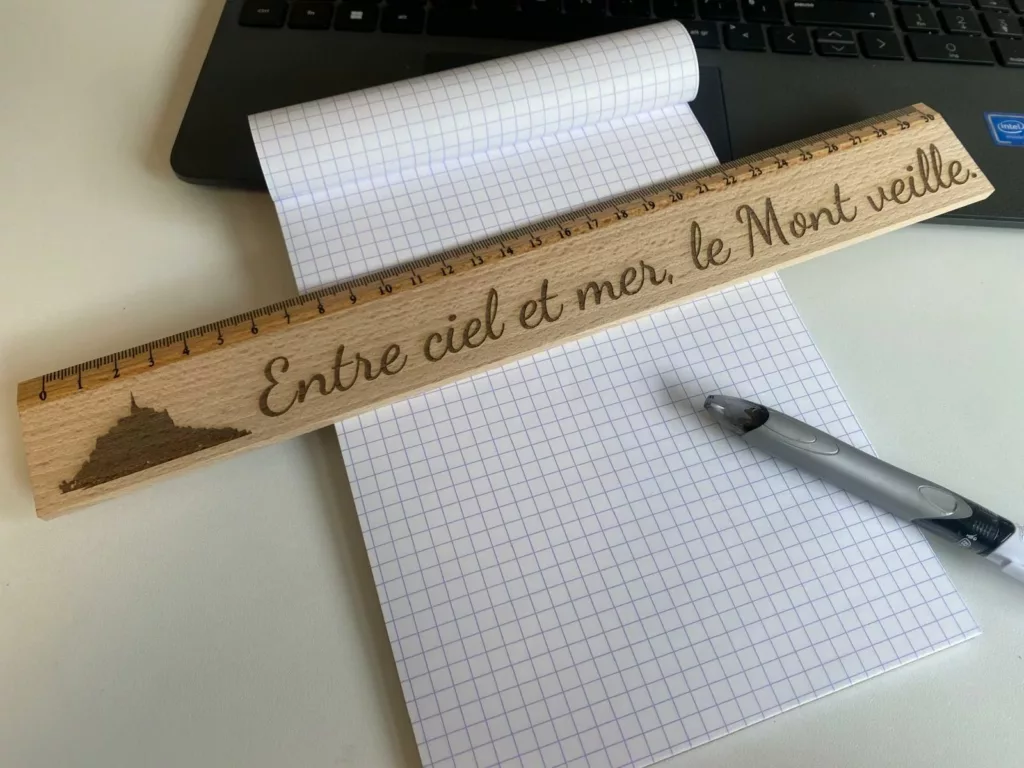 pause
intel
0 1 2 3 4 5 6 7 8 9 10 11 12 13 14 15 16 17 18 19 20 21 22 23 24 25 26 27 28 29 30
Entre ciel et mer, le Mont veille.